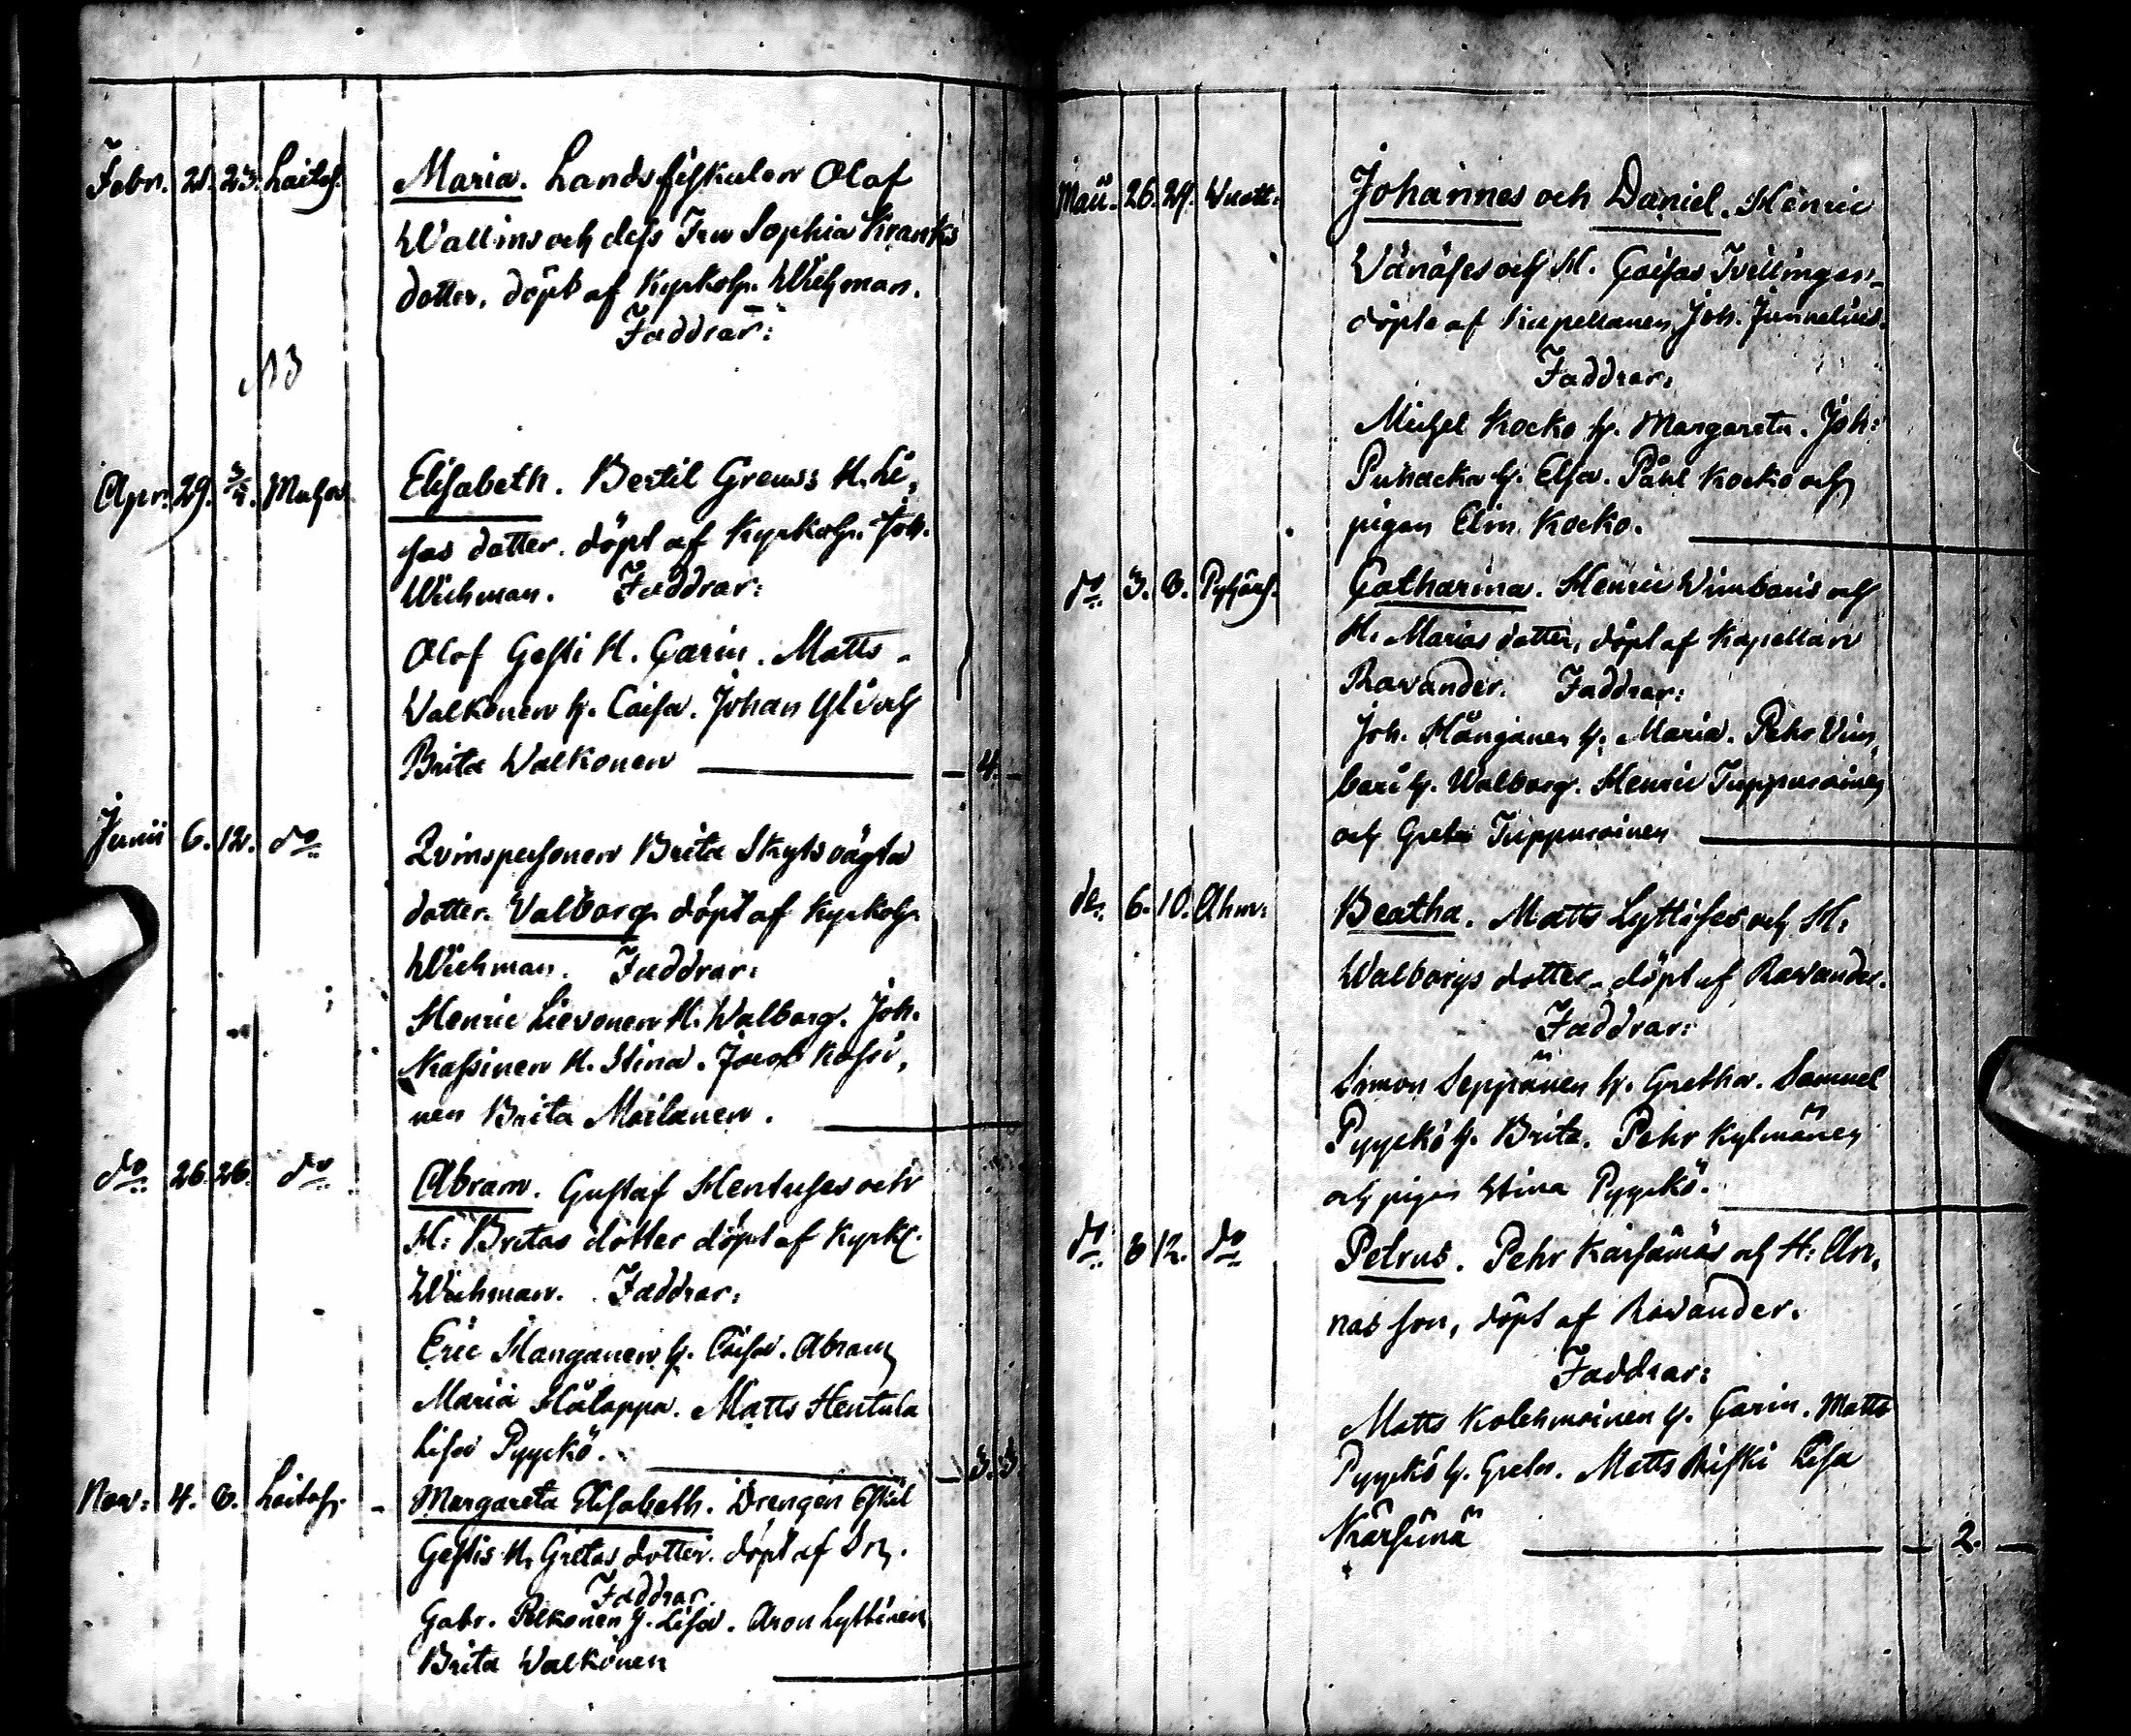 Febr. 21. 23. Laitas. Maria. Landsfiskalen Olof
Wallins och dess Fru Sophia Kranks
dotter, döpt af Kyrkohr. Wichman.
Faddrar:
N3
Apr. 29. 3/4. Muhos Elisabeth. Bertil Greuss H. Li,
sas dotter. döpt af Kyrkohr. Joh.
Wichman. Faddrar:
Olof Gesti H. Carin. Matts
Walkonen h. Caisa. Johan Yli och
Brita Walkonen 4.
Junii 6. 12. do Qvinspersonen Brita Skytsvägta
dotter. Valborg döpt af Kyrkohr.
Wichman. Faddrar:
Henric Lievonen H. Walborg. Joh.
Kassinen H. Stina. Jacob Kassi,
nen Brita Moilanen.
do 26. 26. do Abram. Gustaf Hentuses och
H: Britas dotter döpt af Kyrkh.
Wichman. Faddrar:
Eric Manganen h. Caisa. Abram
Maria Hålappa. Matts Hentula
Lisa Pyyckö. 3. 3
Nov: 4. 8. Laitas. Margareta Elisabeth. Drengen Eskil
Gestis H. Gretas dotter. döpt af Dn.
Faddrar.
Gabr. Pelkonen h. Lisa. Aron Lyttinen
Brita Walkonen
Maii. 26. 29. Wuott. Johannes och Daniel. Henric
Wänäses och H. Caisas Tvillingar
döpte af Kapellanen Joh. Junnelius.
Faddrar:
Michel Kocko h. Margareta. Joh:
Puhacka h. Elsa. Påhl Kocko och
pigan Elin Kocko.
do 3. 8. Pyhäns. Catharina. Henric Wimbaris och
H. Marias dotter, döpt af Kapellan
Ravander. Faddrar:
Joh. Hånganen h. Maria. Pehr Vim,
bari h. Walborg. Henric Tuppurainen
och Greta Tuppurainen
do 6. 10. Ahm: Beatha. Matts Lyttises och H:
Walborgs dotter, döpt af Ravander.
Faddrar:
Simon Seppänen h. Gretha. Samuel
Pyyckö h. Brita. Pehr Kylmänen
och pigan Stina Pyyckö.
do 8 12. do Petrus. Pehr Karsämäs och H: An,
nas son, döpt af Ravander.
Faddrar:
Matts Kolehmainen h. Carin. Matts
Pyyckö h. Greta. Matts Kiski Lisa
Kärsämä 2.